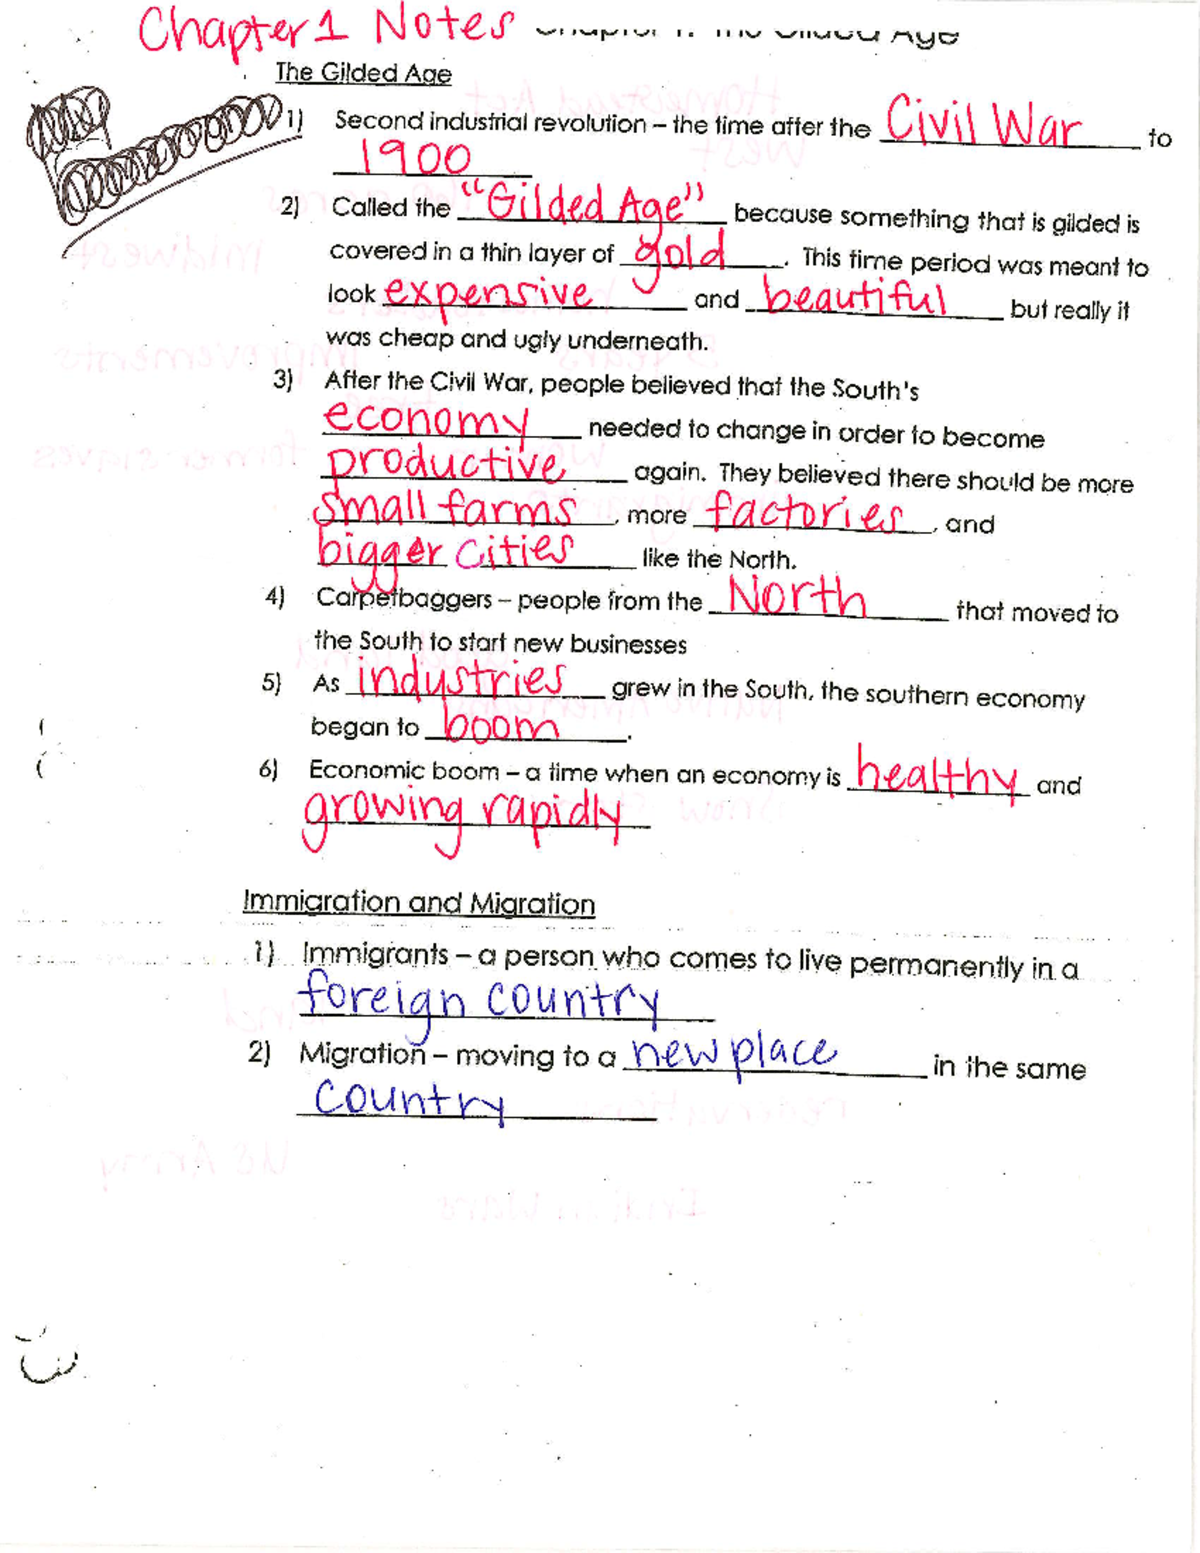 Chapter 1 Notes Chapter 1: The Gilded Age
The Gilded Age
1) Second industrial revolution – the time after the Civil War to
1900
2) Called the "Gilded Age" because something that is gilded is
covered in a thin layer of gold. This time period was meant to
look expensive and beautiful but really it
was cheap and ugly underneath.
3) After the Civil War, people believed that the South's
economy needed to change in order to become
productive again. They believed there should be more
small farms, more factories, and
bigger cities like the North.
4) Carpetbaggers – people from the North that moved to
the South to start new businesses
5) As industries grew in the South, the southern economy
began to boom.
6) Economic boom – a time when an economy is healthy and
growing rapidly
Immigration and Migration
1) Immigrants – a person who comes to live permanently in a
foreign country
2) Migration – moving to a new place in the same
country